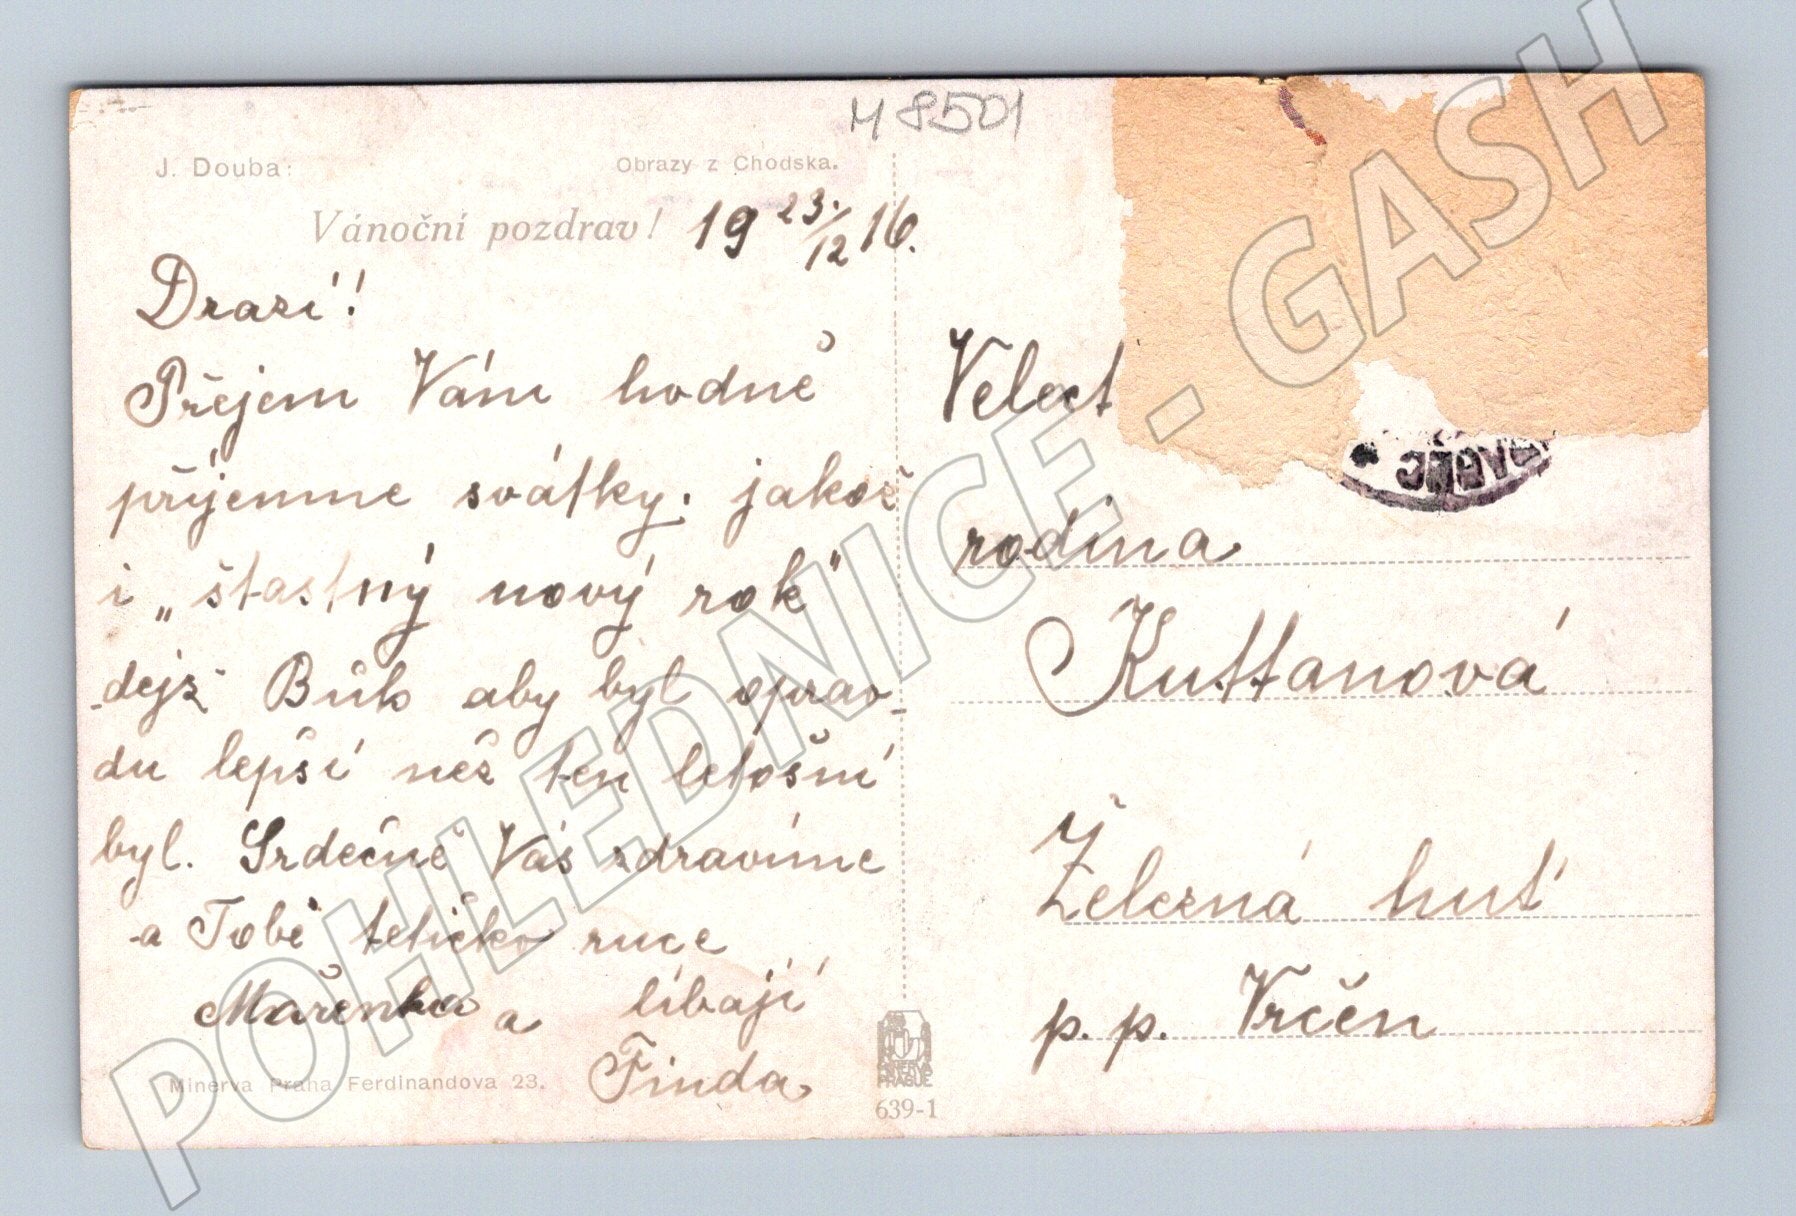 M 8501
J. Douba:
Obrazy z Chodska.
Vánoční pozdrav! 19 23./12 16.
Drazí!
Přejem Vám hodně
příjemne svátky. jakož
i „štastný nový rok"
dejž Bůh aby byl oprav-
du lepší něž ten letošní
byl. Srdečně Vás zdravíme
a Tobě tetičko ruce
líbají
Mařenka a
Finda
Minerva Praha Ferdinandova 23.
MINERVA
PRAGUE
639-1
Velect
rodina
Kuttanová
Železná huť
p. p. Vrčen
POHLEDNICE - GASH